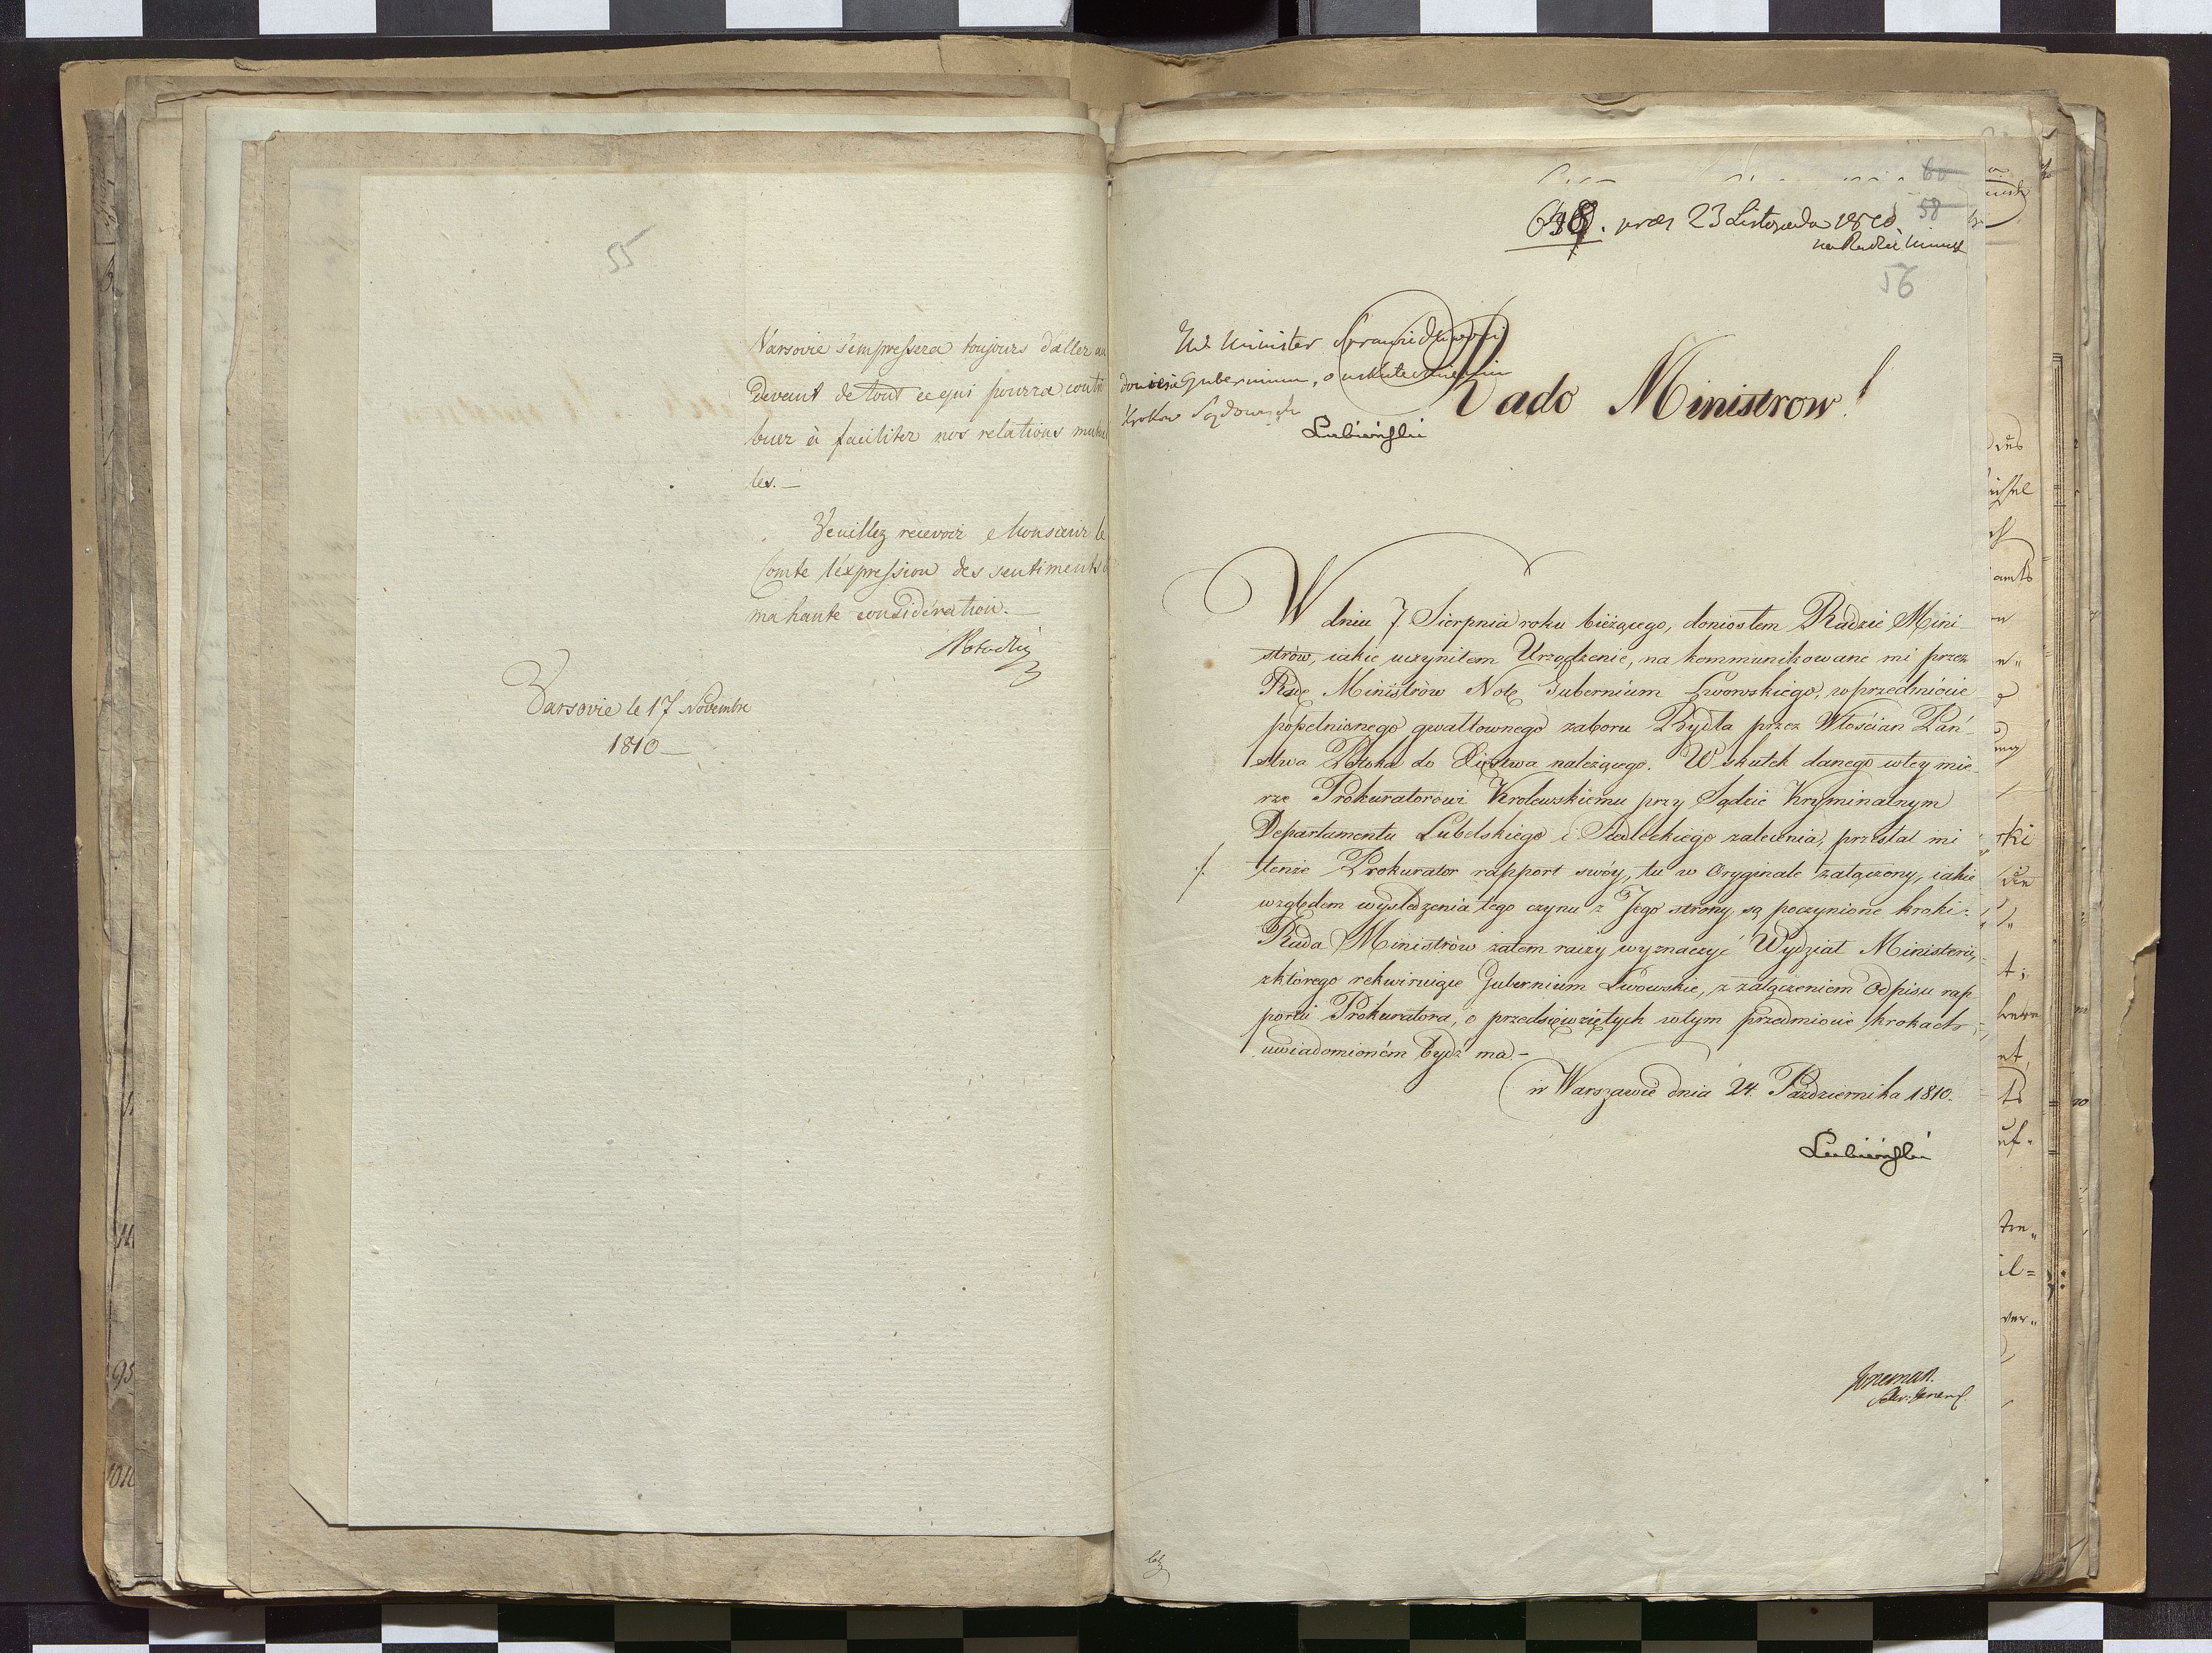 55
Varsovie s'empressera toujours d'aller au
devant de tout ce qui pourra contri
buer à faciliter nos relations mutuel
les. —
Veuillez recevoir Monsieur le
Comte l'expression des sentiments d
ma haute considération. —
Varsovie le 17 Novembre
1810 —
60
58
pres 23 Listopada 1810.
na Radzie Minist
56
JW Minister Sprawiedliwości
doniesie Gubernium, o uskutecznieniu
kroków Sądowych
Łubieński
Rado Ministrow!
W dniu 7 Sierpnia roku bieżącego, doniosłem Radzie Mini
strów, iakie uczyniłem Urządzenie, na kommunikowane mi przez
Radę Ministrów Notę Gubernium Lwowskiego, w przedmiocie
popełnionego gwałtownego zaboru Bydła przez Włościan Pań-
stwa Potoka do Xięstwa należącego. W skutek danego w tey mie-
rze Prokuratorowi Krolewskiemu przy Sądzie Kryminalnym
Departamentu Lubelskiego i Siedleckiego zalecenia, przesłał mi
tenże Prokurator rapport swóy, tu w Oryginale załączony, iakie
względem wyśledzenia tego czynu z Jego strony są poczynione kroki.
Rada Ministrów zatem raczy wyznaczyć Wydział Ministerii,
z którego rekwiruiące Gubernium Lwowskie, z załączeniem Odpisu rap
portu Prokuratora, o przedsięwziętych w tym przedmiocie krokach,
uwiadomioném bydź ma. —
w Warszawie dnia 24. Października 1810.
Łubieński